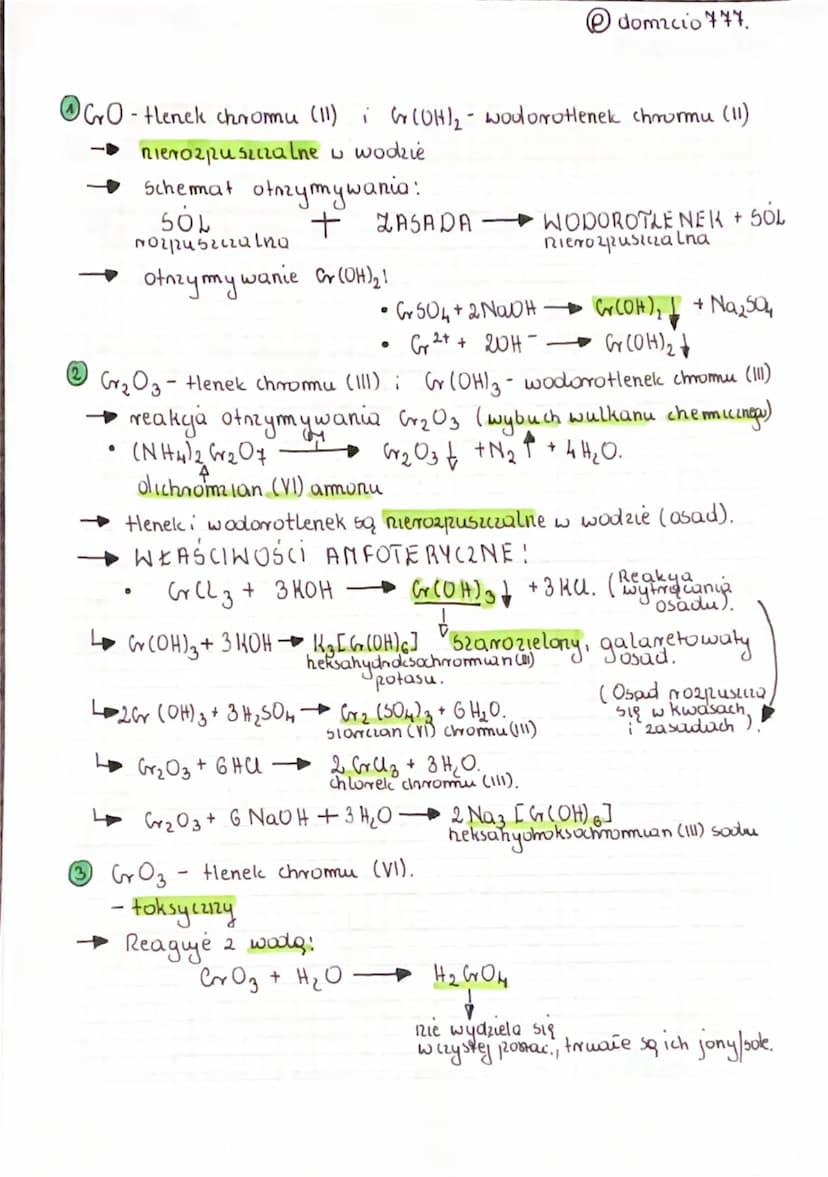 ℗ domzcio777.
1 CrO - tlenek chromu (II) i Cr(OH)2 - wodorotlenek chromu (II)
→ nierozpuszczalne w wodzie
→ schemat otrzymywania:
SÓL + ZASADA → WODOROTLENEK + SÓL
rozpuszczalna nierozpuszczalna
→ otrzymywanie Cr(OH)2:
• CrSO4 + 2NaOH → Cr(OH)2↓ + Na2SO4
• Cr2+ + 2OH- → Cr(OH)2↓
2 Cr2O3 - tlenek chromu (III) i Cr(OH)3 - wodorotlenek chromu (III)
→ reakcja otrzymywania Cr2O3 (wybuch wulkanu chemicznego)
• (NH4)2Cr2O7 → Cr2O3↓ + N2↑ + 4H2O.
dichromian (VI) amonu
→ tlenek i wodorotlenek są nierozpuszczalne w wodzie (osad).
→ WŁAŚCIWOŚCI AMFOTERYCZNE!
• CrCl3 + 3KOH → Cr(OH)3↓ + 3KCl. (Reakcja wytrącania osadu).
↳ Cr(OH)3 + 3KOH → K3[Cr(OH)6] szarozielony, galaretowaty osad.
heksahydroksochromian(III) potasu.
(Osad rozpuszcza się w kwasach i zasadach).
↳ 2Cr(OH)3 + 3H2SO4 → Cr2(SO4)3 + 6H2O.
siarczan (VI) chromu (III)
↳ Cr2O3 + 6HCl → 2CrCl3 + 3H2O.
chlorek chromu (III).
↳ Cr2O3 + 6NaOH + 3H2O → 2Na3[Cr(OH)6]
heksahydroksochromian (III) sodu
3 CrO3 - tlenek chromu (VI).
- toksyczny
→ Reaguje z wodą:
CrO3 + H2O → H2CrO4
nie wydziela się
w czystej postaci, trwałe są ich jony/sole.